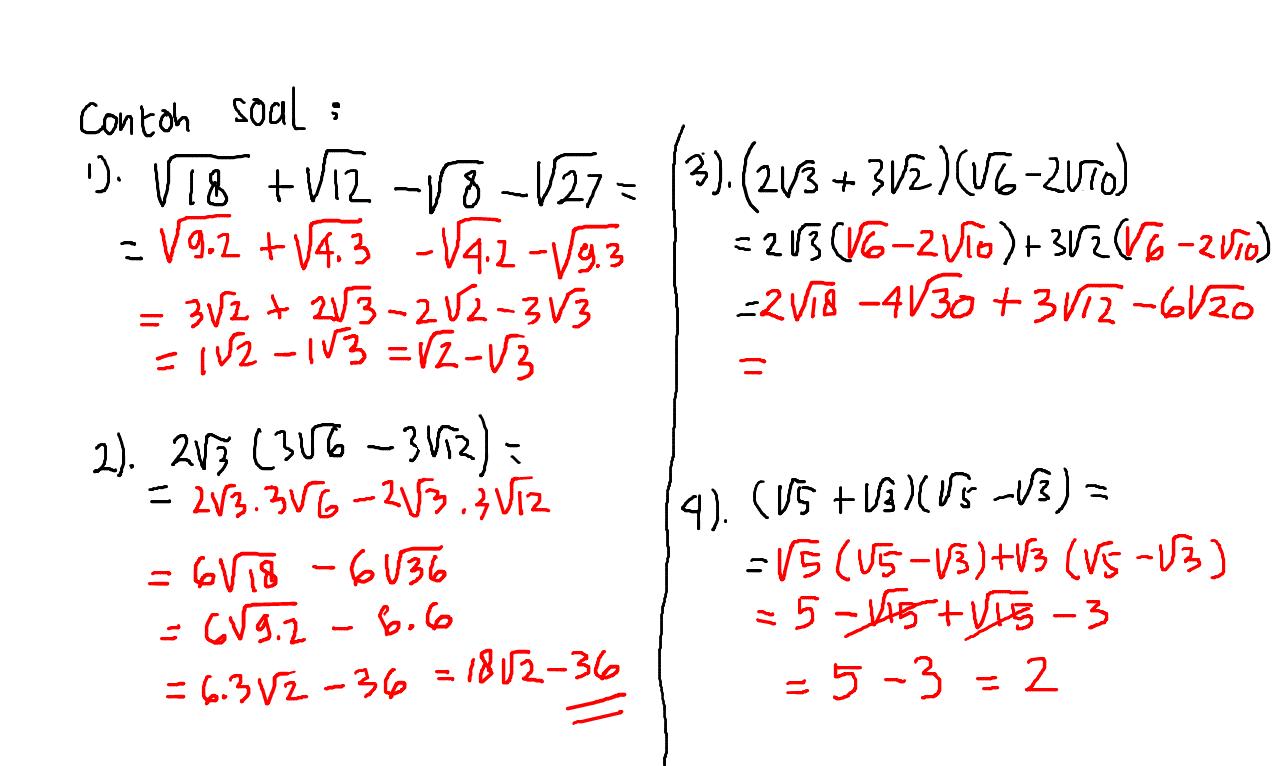 Contoh soal :
1). √18 + √12 - √8 - √27 =
= √9.2 + √4.3 - √4.2 - √9.3
= 3√2 + 2√3 - 2√2 - 3√3
= 1√2 - 1√3 = √2 - √3
2). 2√3 (3√6 - 3√12) =
= 2√3.3√6 - 2√3.3√12
= 6√18 - 6√36
= 6√9.2 - 6.6
= 6.3√2 - 36 = 18√2 - 36
3). (2√3 + 3√2)(√6 - 2√10)
= 2√3 (√6 - 2√10) + 3√2 (√6 - 2√10)
= 2√18 - 4√30 + 3√12 - 6√20
=
4). (√5 + √3)(√5 - √3) =
= √5 (√5 - √3) + √3 (√5 - √3)
= 5 - √15 + √15 - 3
= 5 - 3 = 2